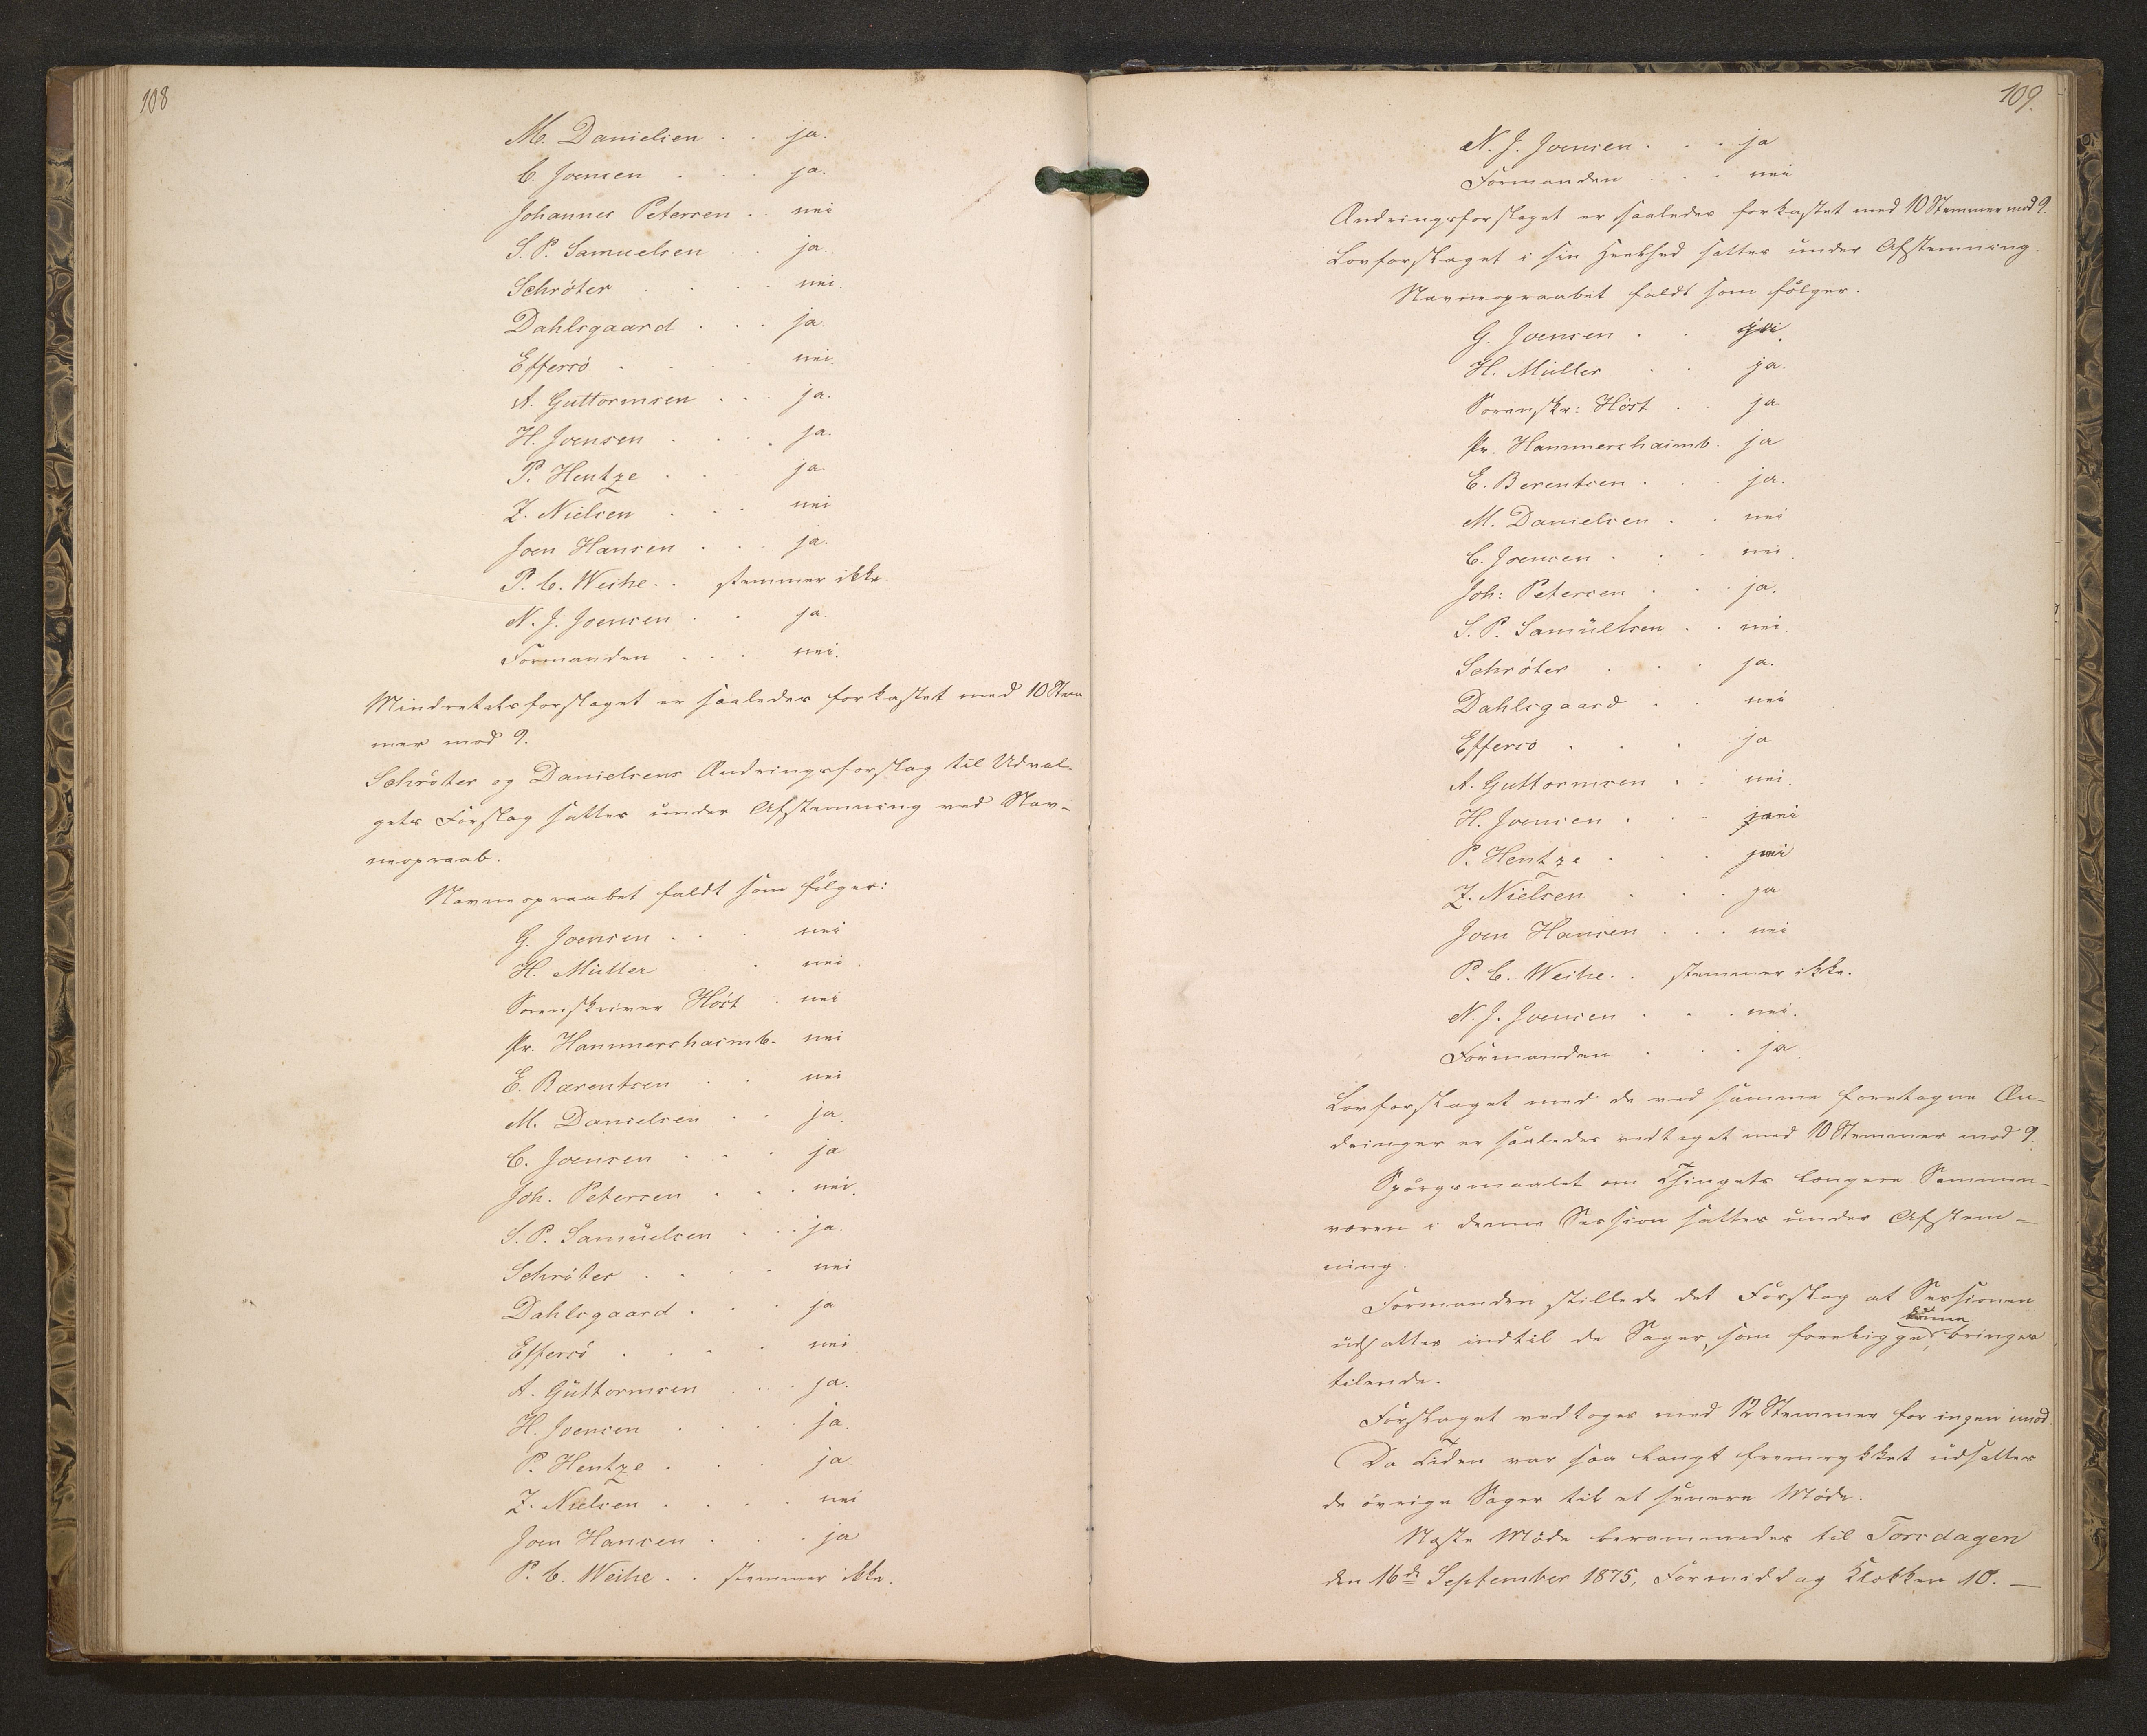 108
M. Danielsen . . ja.
C. Joensen . . . ja.
Johannes Petersen . . nei
S. P. Samuelsen . . ja.
Schröter . . . . nei.
Dahlsgaard . . . ja.
Effersö . . . . nei.
A. Guttormsen . . . ja.
H. Joensen . . . . ja.
P. Hentze . . . ja.
Z. Nielsen . . . nei
Joen Hansen . . . ja.
P. C. Weihe. . stemmer ikke.
N. J. Joensen . . ja.
Formanden . . . nei.
Mindretalsforslaget er saaledes forkastet med 10 Stem
mer mod 9.
Schröter og Danielsens Ændringsforslag til Udval-
gets Forslag sattes under Afstemning ved Nav-
neopraab.
Navneopraabet faldt som følger:
G. Joensen . . . nei
H. Müller . . nei.
Sorenskriver Höst . nei
Pr. Hammershaimb. nei
E. Bærentsen . . nei
M. Danielsen . . ja.
C. Joensen . . . ja
Joh. Petersen . . . nei.
S. P. Samüelsen . . ja.
Schröter . . . . nei
Dahlsgaard . . . ja
Effersö . . . . nei
A. Güttormsen . . . ja.
H. Joensen . . . ja.
P. Hentze . . . ja.
Z. Nielsen . . . . nei
Joen Hansen . . . ja
P. C. Weihe . . stemmer ikke.
109.
N. J. Joensen . . . ja
Formanden . . . nei
Ændringsforslaget er saaledes forkastet med 10 Stemmer mod 9.
Lovforslaget i sin Heelhed sattes under Afstemning.
Navneopraabet faldt som følger.
G. Joensen . .
H. Müller . . ja.
Sorenskr: Höst . . ja
Pr. Hammershaimb. ja
E. Berentsen . . . ja.
M. Danielsen . . nei
C. Joensen . . . nei.
Joh: Petersen . . . ja.
S. P. Samüelsen . . nei.
Schröter . . . ja.
Dahlsgaard . . nei
Effersö . . . ja
A. Guttormsen . . nei.
H. Joensen . . . nei
P. Hentze . . . nei
Z. Nielsen . . . ja
Joen Hansen . . . nei
P. C. Weihe. . stemmer ikke.
N. J. Joensen . . . nei.
Formanden . . . ja.
Lovforslaget med de ved samme foretagne Æn-
dringer er saaledes vedtaget med 10 Stemmer mod 9.
Spörgsmaalet om Thingets længere Sammen-
væren i denne Session sattes under Afstem-
ning.
Formanden stillede det Forslag at Sessionen
kunne
udsattes indtil de Sager, som foreligge, bringes
tilende.
Forslaget vedtoges med 12 Stemmer for ingen imod.
Da Tiden var saa langt fremrykket udsattes
de övrige Sager til et senere Möde.
Næste Möde berammedes til Torsdagen
den 16de September 1875, Formiddag Klokken 10. —